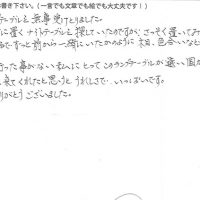 書き下さい。(一言でも文章でも絵でも大丈夫です!)
テーブルを無事受けとりました。
に置くナイトテーブルを探していたのですが、さっそく置いてみ
ずっと前から一緒にいたかのように 木目、色合いなど
った事がない私にとってこのランプテーブルが遠い国か
来てくれたと思うとうれしさで…いっぱいです。
りがとうございました。